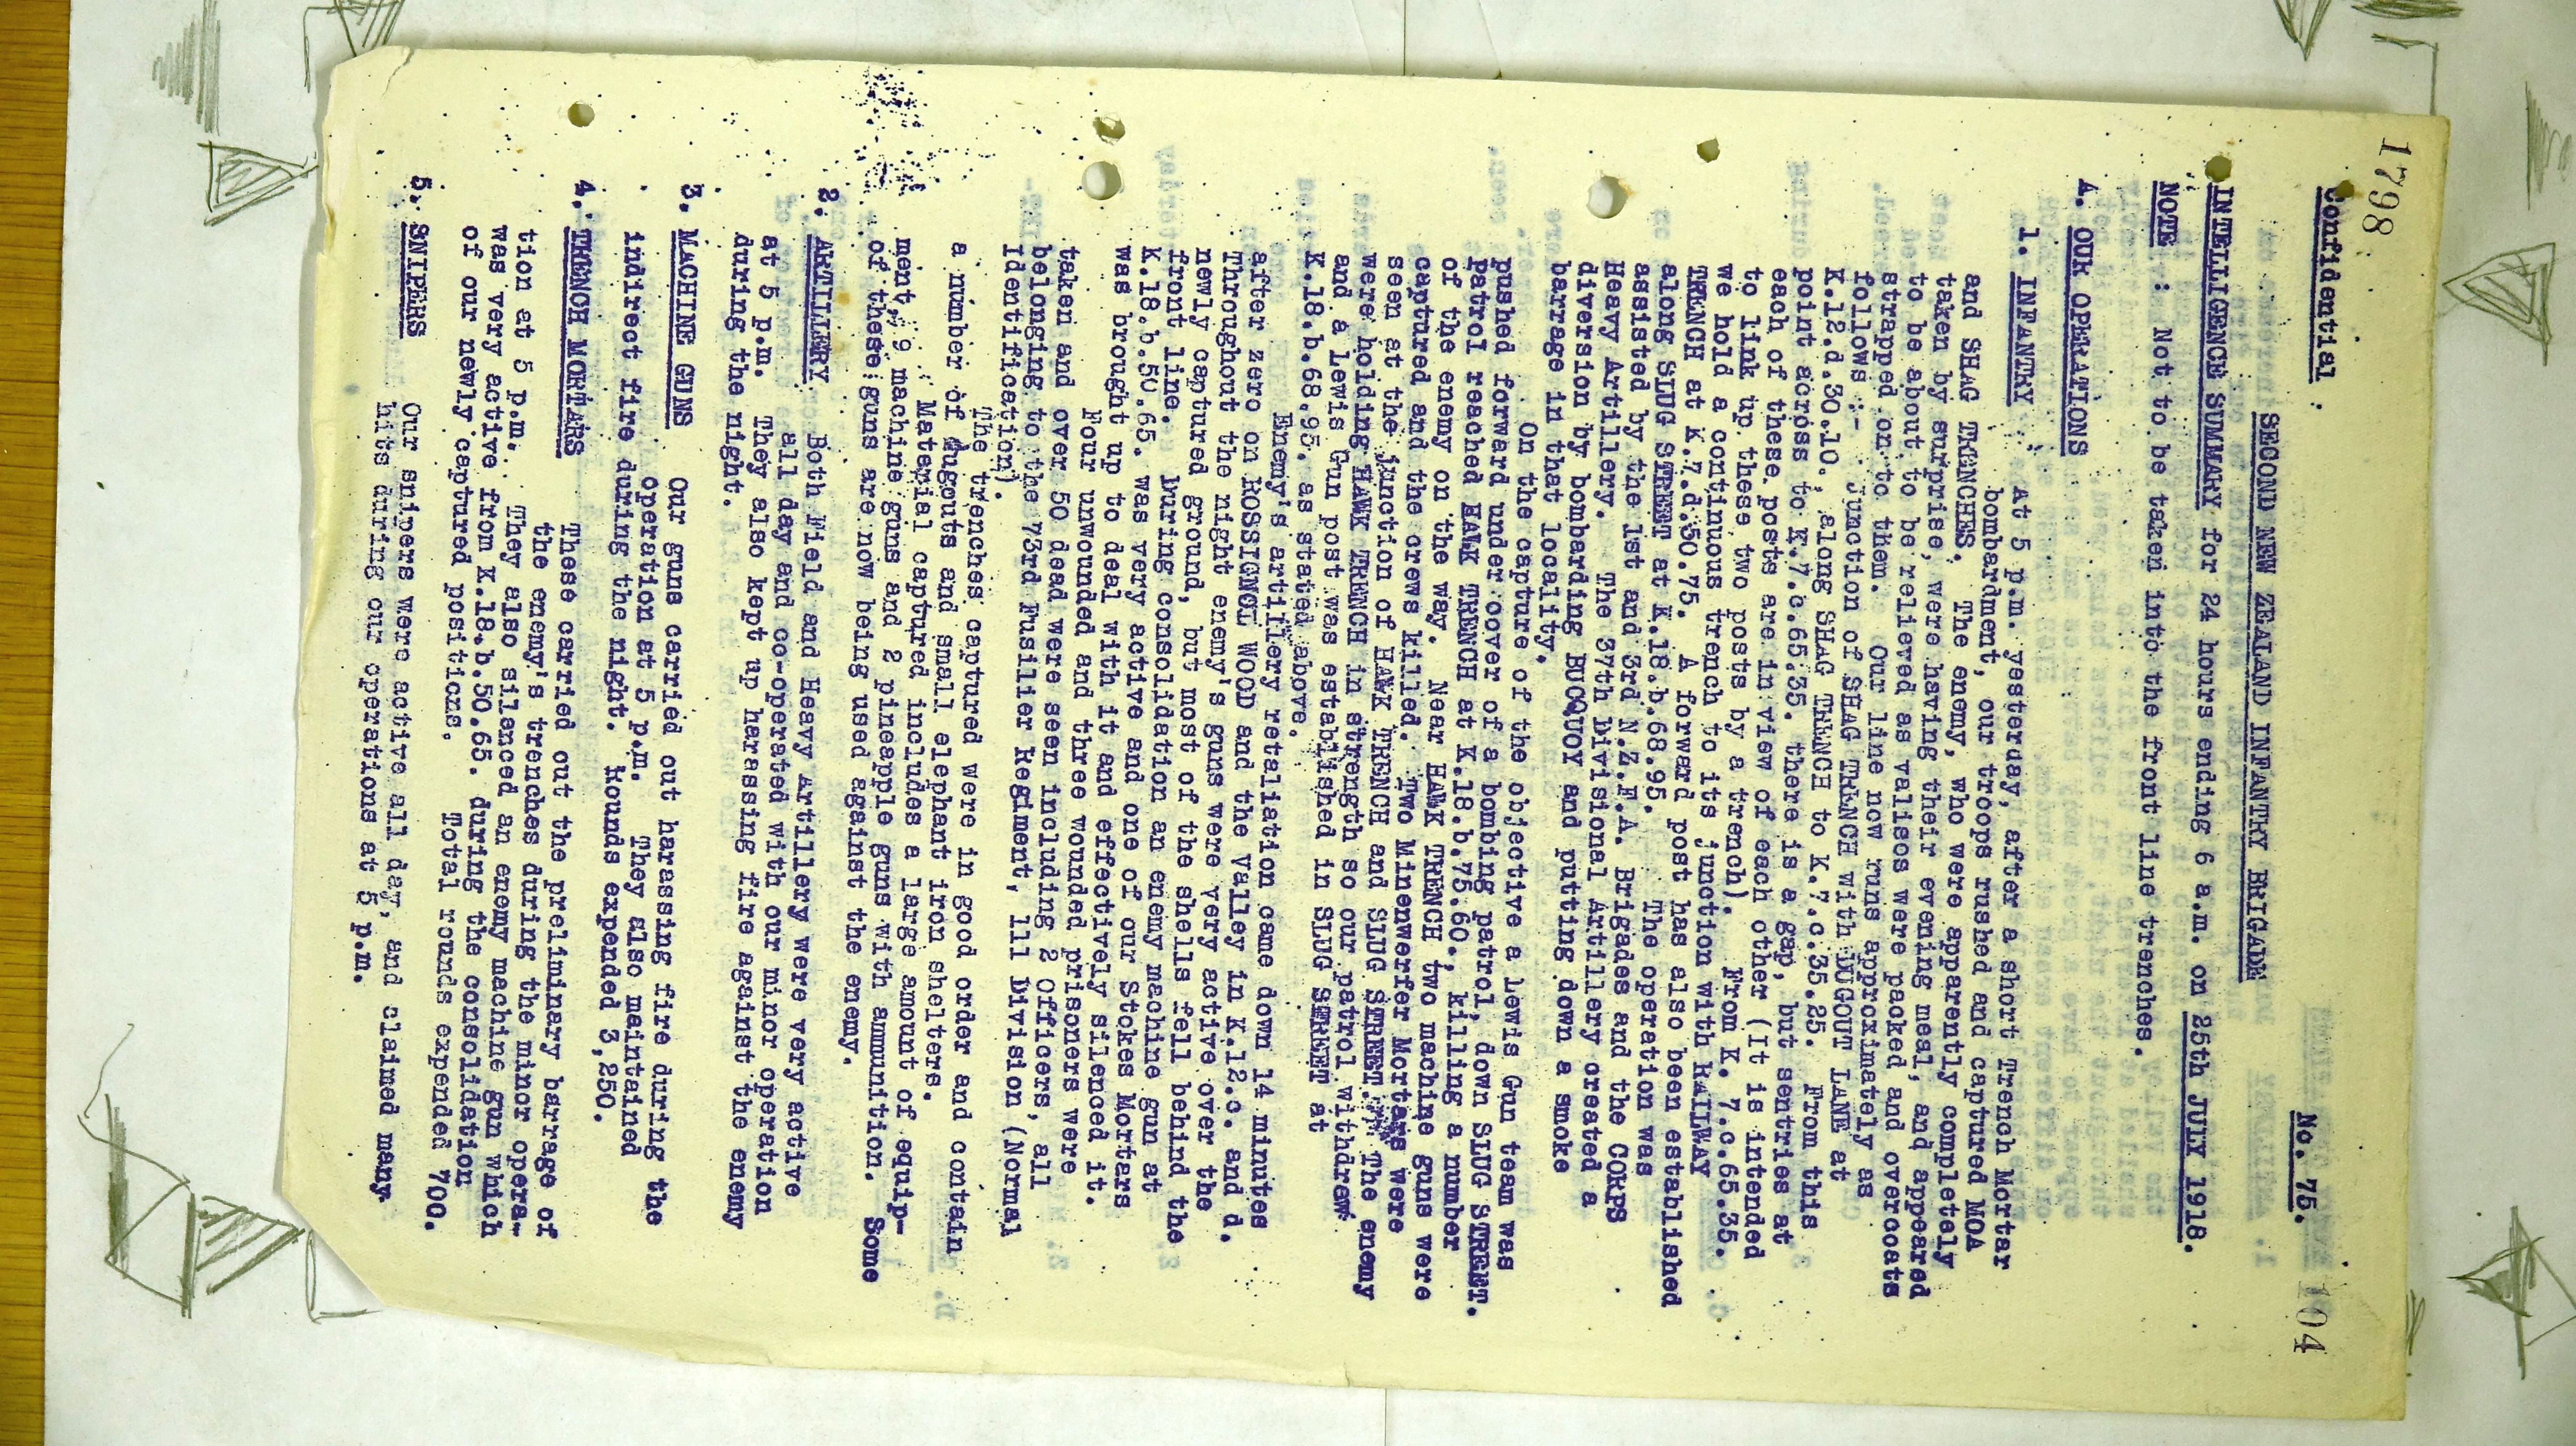 1798
104
Confidential.
No. 75.
SECOND NEW ZEALAND INFANTRY BRIGADE
INTELLIGENCE SUMMARY for 24 hours ending 6 a.m. on 25th JULY 1918.
NOTE : Not to be taken into the front line trenches.
A. OUR OPERATIONS
1. INFANTRY At 5 p.m. yesterday, after a short Trench Mortar
bombardment, our troops rushed and captured MOA
and SHAG TRENCHES. The enemy, who were apparently completely
taken by surprise, were having their evening meal, and appeared
to be about to be relieved as valises were packed and overcoats
strapped on to them. Our line now runs approximately as
follows :- Junction of SHAG TRENCH with DUGOUT LANE at
K.12.d.30.10., along SHAG TRENCH to K.7.c.35.25. From this
point across to K.7.c.65.35. there is a gap, but sentries at
each of these posts are in view of each other (It is intended
to link up these two posts by a trench). From K. 7.c.65.35.
we hold a continuous trench to its junction with RAILWAY
TRENCH at K.7.d.50.75. A forward post has also been established
along SLUG STREET at K.18.b.68.95. The operation was
assisted by the 1st and 3rd N.Z.F.A. Brigades and the CORPS
Heavy Artillery. The 37th Divisional Artillery created a
diversion by bombarding BUCQUOY and putting down a smoke
barrage in that locality.
On the capture of the objective a Lewis Gun team was
pushed forward under cover of a bombing patrol, down SLUG STREET.
Patrol reached HAWK TRENCH at K.18.b.75.60., killing a number
of the enemy on the way. Near HAWK TRENCH two machine guns were
captured and the crews killed. Two Minenwerfer Mortars were
seen at the junction of HAWK TRENCH and SLUG STREET. The enemy
were holding HAWK TRENCH in strength so our patrol withdrew
and a Lewis Gun post was established in SLUG STREET at
K.18.b.68.95. as stated above.
Enemy's artillery retaliation came down 14 minutes
after zero on ROSSIGNOL WOOD and the valley in K.12.c. and d.
Throughout the night enemy's guns were very active over the
newly captured ground, but most of the shells fell behind the
front line. During consolidation an enemy machine gun at
K.18.b.50.65. was very active and one of our Stokes Mortars
was brought up to deal with it and effectively silenced it.
Four unwounded and three wounded prisoners were
taken and over 50 dead were seen including 2 Officers, all
belonging to the 73rd Fusilier Regiment, 111 Division (Normal
Identification).
The trenches captured were in good order and contain
a number of dugouts and small elephant iron shelters.
Material captured includes a large amount of equip-
ment, 9 machine guns and 2 pineapple guns with ammunition. Some
of these guns are now being used against the enemy.
2. ARTILLERY Both Field and Heavy Artillery were very active
all day and co-operated with our minor operation
at 5 p.m. They also kept up harassing fire against the enemy
during the night.
3. MACHINE GUNS Our guns carried out harassing fire during the
operation at 5 p.m. They also maintained
indirect fire during the night. Rounds expended 3,250.
4. TRENCH MORTARS These carried out the preliminary barrage of
the enemy's trenches during the minor opera-
tion at 5 p.m. They also silenced an enemy machine gun which
was very active from K.18.b.50.65. during the consolidation
of our newly captured positions. Total rounds expended 700.
5. SNIPERS Our snipers were active all day, and claimed many
hits during our operations at 5 p.m.